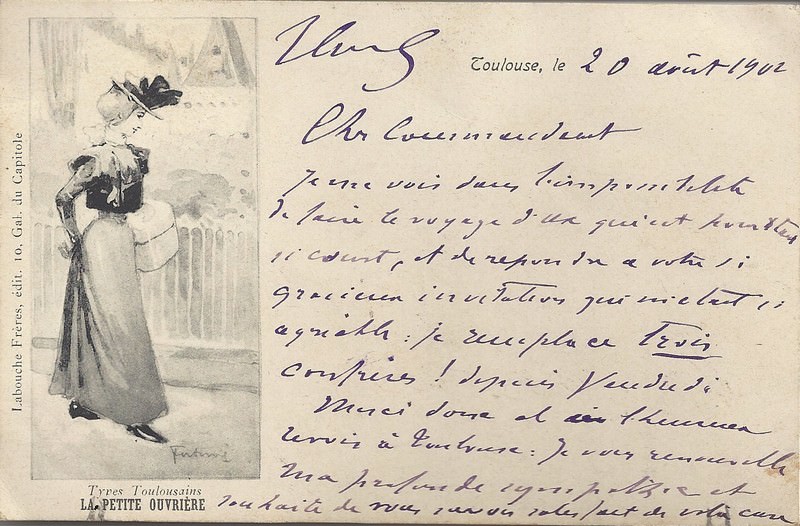 Toulouse, le 20 août 1902
Cher Commandant
Je me vois dans l'impossibilité
de faire le voyage d'Ax qui est pourtant
si court, et de repondre a votre si
gracieuse invitation qui m'etait si
agréable : je remplace trois
confrères ! depuis Vendredi
Merci donc et a l'heureux
revoir à Toulouse : Je vous renouvelle
ma profonde sympathie et
souhaite de vous savoir satisfait de votre cure
Labouche Frères, édit. 10, Gal. du Capitole
Types Toulousains
LA PETITE OUVRIÈRE